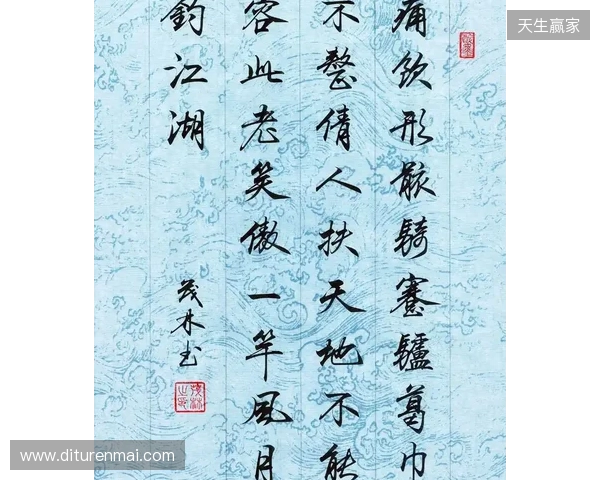 天生赢家
痛饮形骸騎蹇驢葛巾
不整倩人扶天地不能
容此老笑傲一竿風月
釣江湖
茂林书
www.diturenmai.com